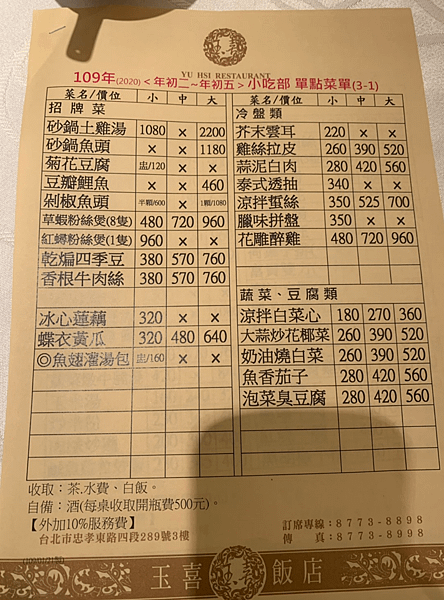 YU HSI RESTAURANT
109年(2020)<年初二~年初五>小吃部 單點菜單(3-1)
菜名/價位 小 中 大
招牌菜
砂鍋土雞湯 1080 × 2200
砂鍋魚頭 × × 1180
菊花豆腐 盅/120 × ×
豆瓣鯉魚 × × 460
剁椒魚頭 半顆/600 × 1顆/1080
草蝦粉絲煲(8隻) 480 720 960
紅蟳粉絲煲(1隻) 960 × ×
乾煸四季豆 380 570 760
香根牛肉絲 380 570 760
冰心蓮藕 320 × ×
蝶衣黃瓜 320 480 640
◎魚翅灌湯包 盅/160 × ×
菜名/價位 小 中 大
冷盤類
芥末雲耳 220 × ×
雞絲拉皮 260 390 520
蒜泥白肉 280 420 560
泰式透抽 340 × ×
涼拌蜇絲 350 525 700
臘味拼盤 350 × ×
花雕醉雞 480 720 960
蔬菜、豆腐類
涼拌白菜心 180 270 360
大蒜炒花椰菜 260 390 520
奶油燒白菜 260 390 520
魚香茄子 280 420 560
泡菜臭豆腐 280 420 560
收取：茶.水費、白飯。
自備：酒(每桌收取開瓶費500元)。
【外加10%服務費】
台北市忠孝東路四段289號3樓
訂席專線：8773-8898
傳 真：8773-8998
玉喜 飯店